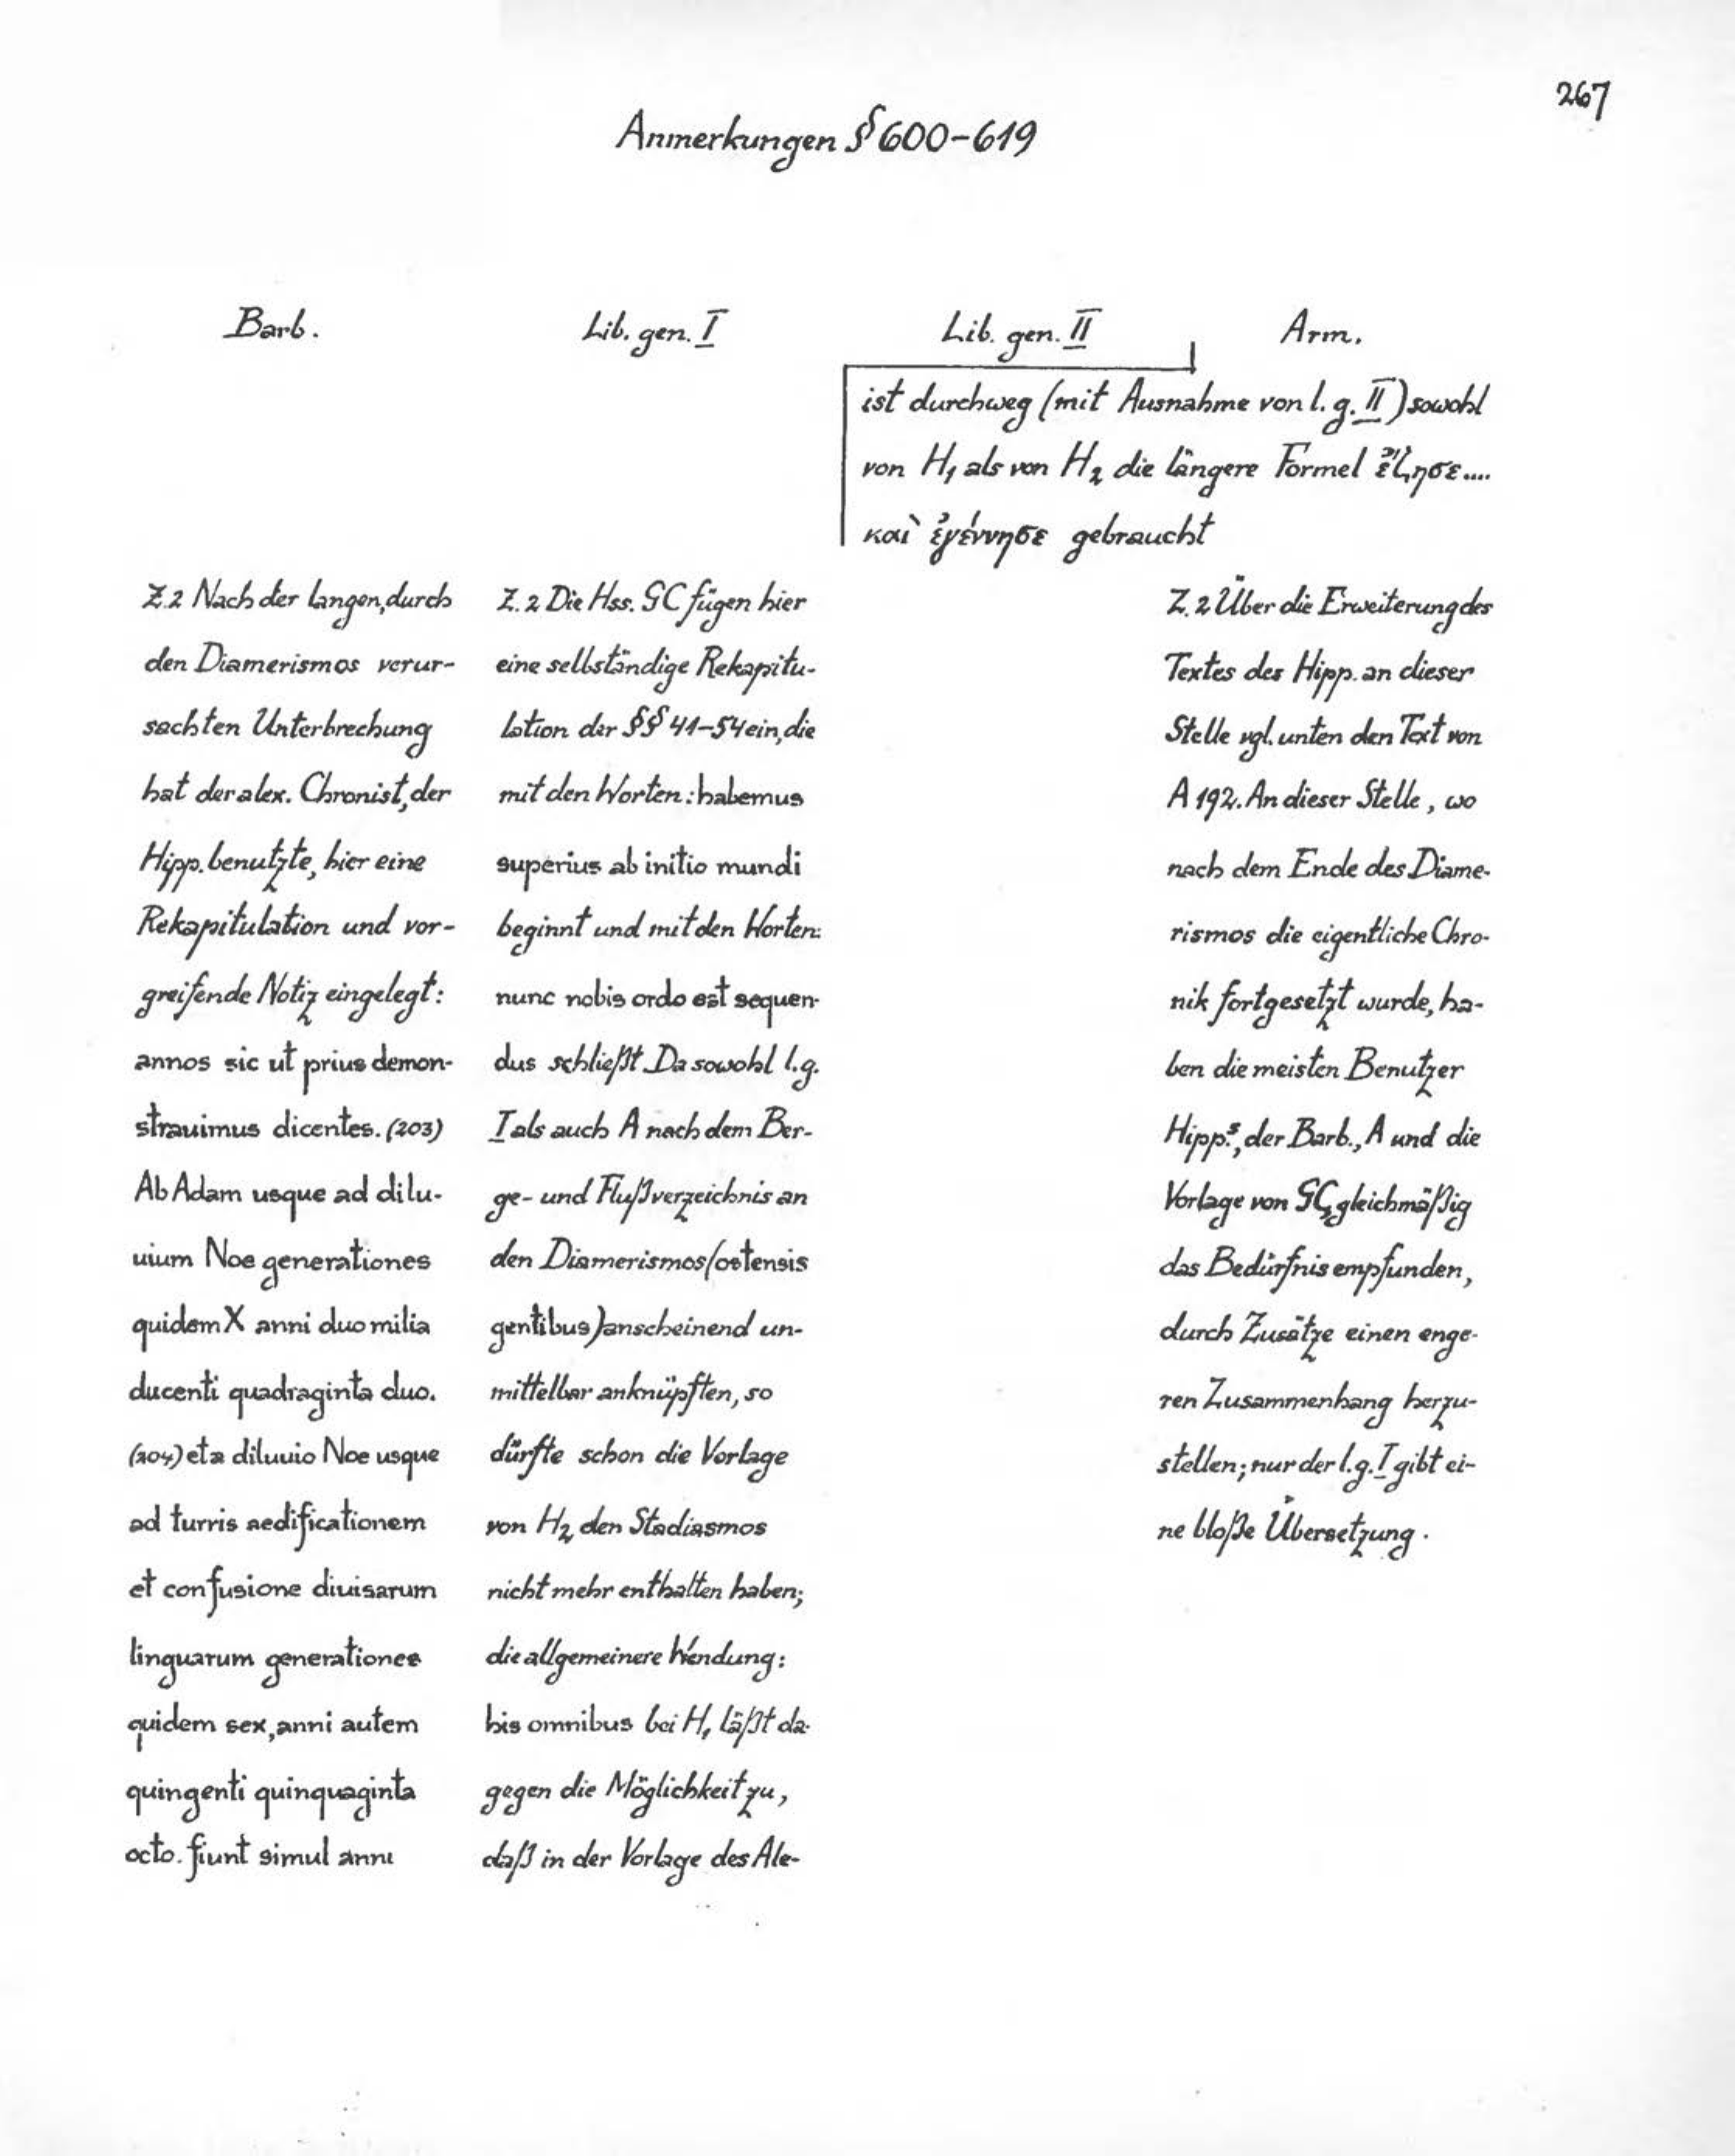 267
Anmerkungen § 600-619
Barb.
Lib. gen. I
Lib. gen. II
Arm.
ist durchweg (mit Ausnahme von l. g. II) sowohl
von H₁ als von H₂ die längere Formel ἔζησε....
καὶ ἐγέννησε gebraucht
Z. 2 Nach der langen, durch
den Diamerismos verur-
sachten Unterbrechung
hat der alex. Chronist, der
Hipp. benutzte, hier eine
Rekapitulation und vor-
greifende Notiz eingelegt:
annos sic ut prius demon-
strauimus dicentes. (203)
Ab Adam usque ad dilu-
uium Noe generationes
quidem X anni duo milia
ducenti quadraginta duo.
(204) et a diluuio Noe usque
ad turris aedificationem
et confusione diuisarum
linguarum generationes
quidem sex, anni autem
quingenti quinquaginta
octo. fiunt simul anni
Z. 2 Die Hss. GC fügen hier
eine selbständige Rekapitu-
lation der §§ 41-54 ein, die
mit den Worten: habemus
superius ab initio mundi
beginnt und mit den Worten:
nunc nobis ordo est sequen-
dus schließt. Da sowohl l. g.
I als auch A nach dem Ber-
ge- und Flußverzeichnis an
den Diamerismos (ostensis
gentibus) anscheinend un-
mittelbar anknüpften, so
dürfte schon die Vorlage
von H₂ den Stadiasmos
nicht mehr enthalten haben;
die allgemeinere Wendung:
his omnibus bei H₁ läßt da-
gegen die Möglichkeit zu,
daß in der Vorlage des Ale-
Z. 2 Über die Erweiterung des
Textes des Hipp. an dieser
Stelle vgl. unten den Text von
A 192. An dieser Stelle, wo
nach dem Ende des Diame-
rismos die eigentliche Chro-
nik fortgesetzt wurde, ha-
ben die meisten Benutzer
Hipp.s, der Barb., A und die
Vorlage von GC, gleichmäßig
das Bedürfnis empfunden,
durch Zusätze einen enge-
ren Zusammenhang herzu-
stellen; nur der l. g. I gibt ei-
ne bloße Übersetzung.